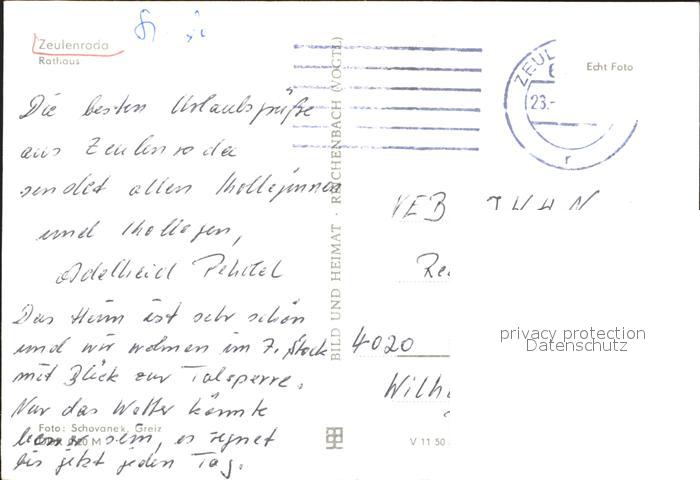 Zeulenroda
Rathaus
Echt Foto
ZEUL
23.-
r
Die besten Urlaubsgrüße
aus Zeulenroda
sendet allen Kolleginnen
und Kollegen,
Adelheid
Das Heim ist sehr schön
und wir wohnen im 7. Stock
mit Blick zur Talsperre.
Nur das Wetter könnte
besser sein, es regnet
bis jetzt jeden Tag.
BILD UND HEIMAT · REICHENBACH (VOGTL)
VEB
4020
Wilh
Foto: Schovanek, Greiz
V 11 50
privacy protection
Datenschutz